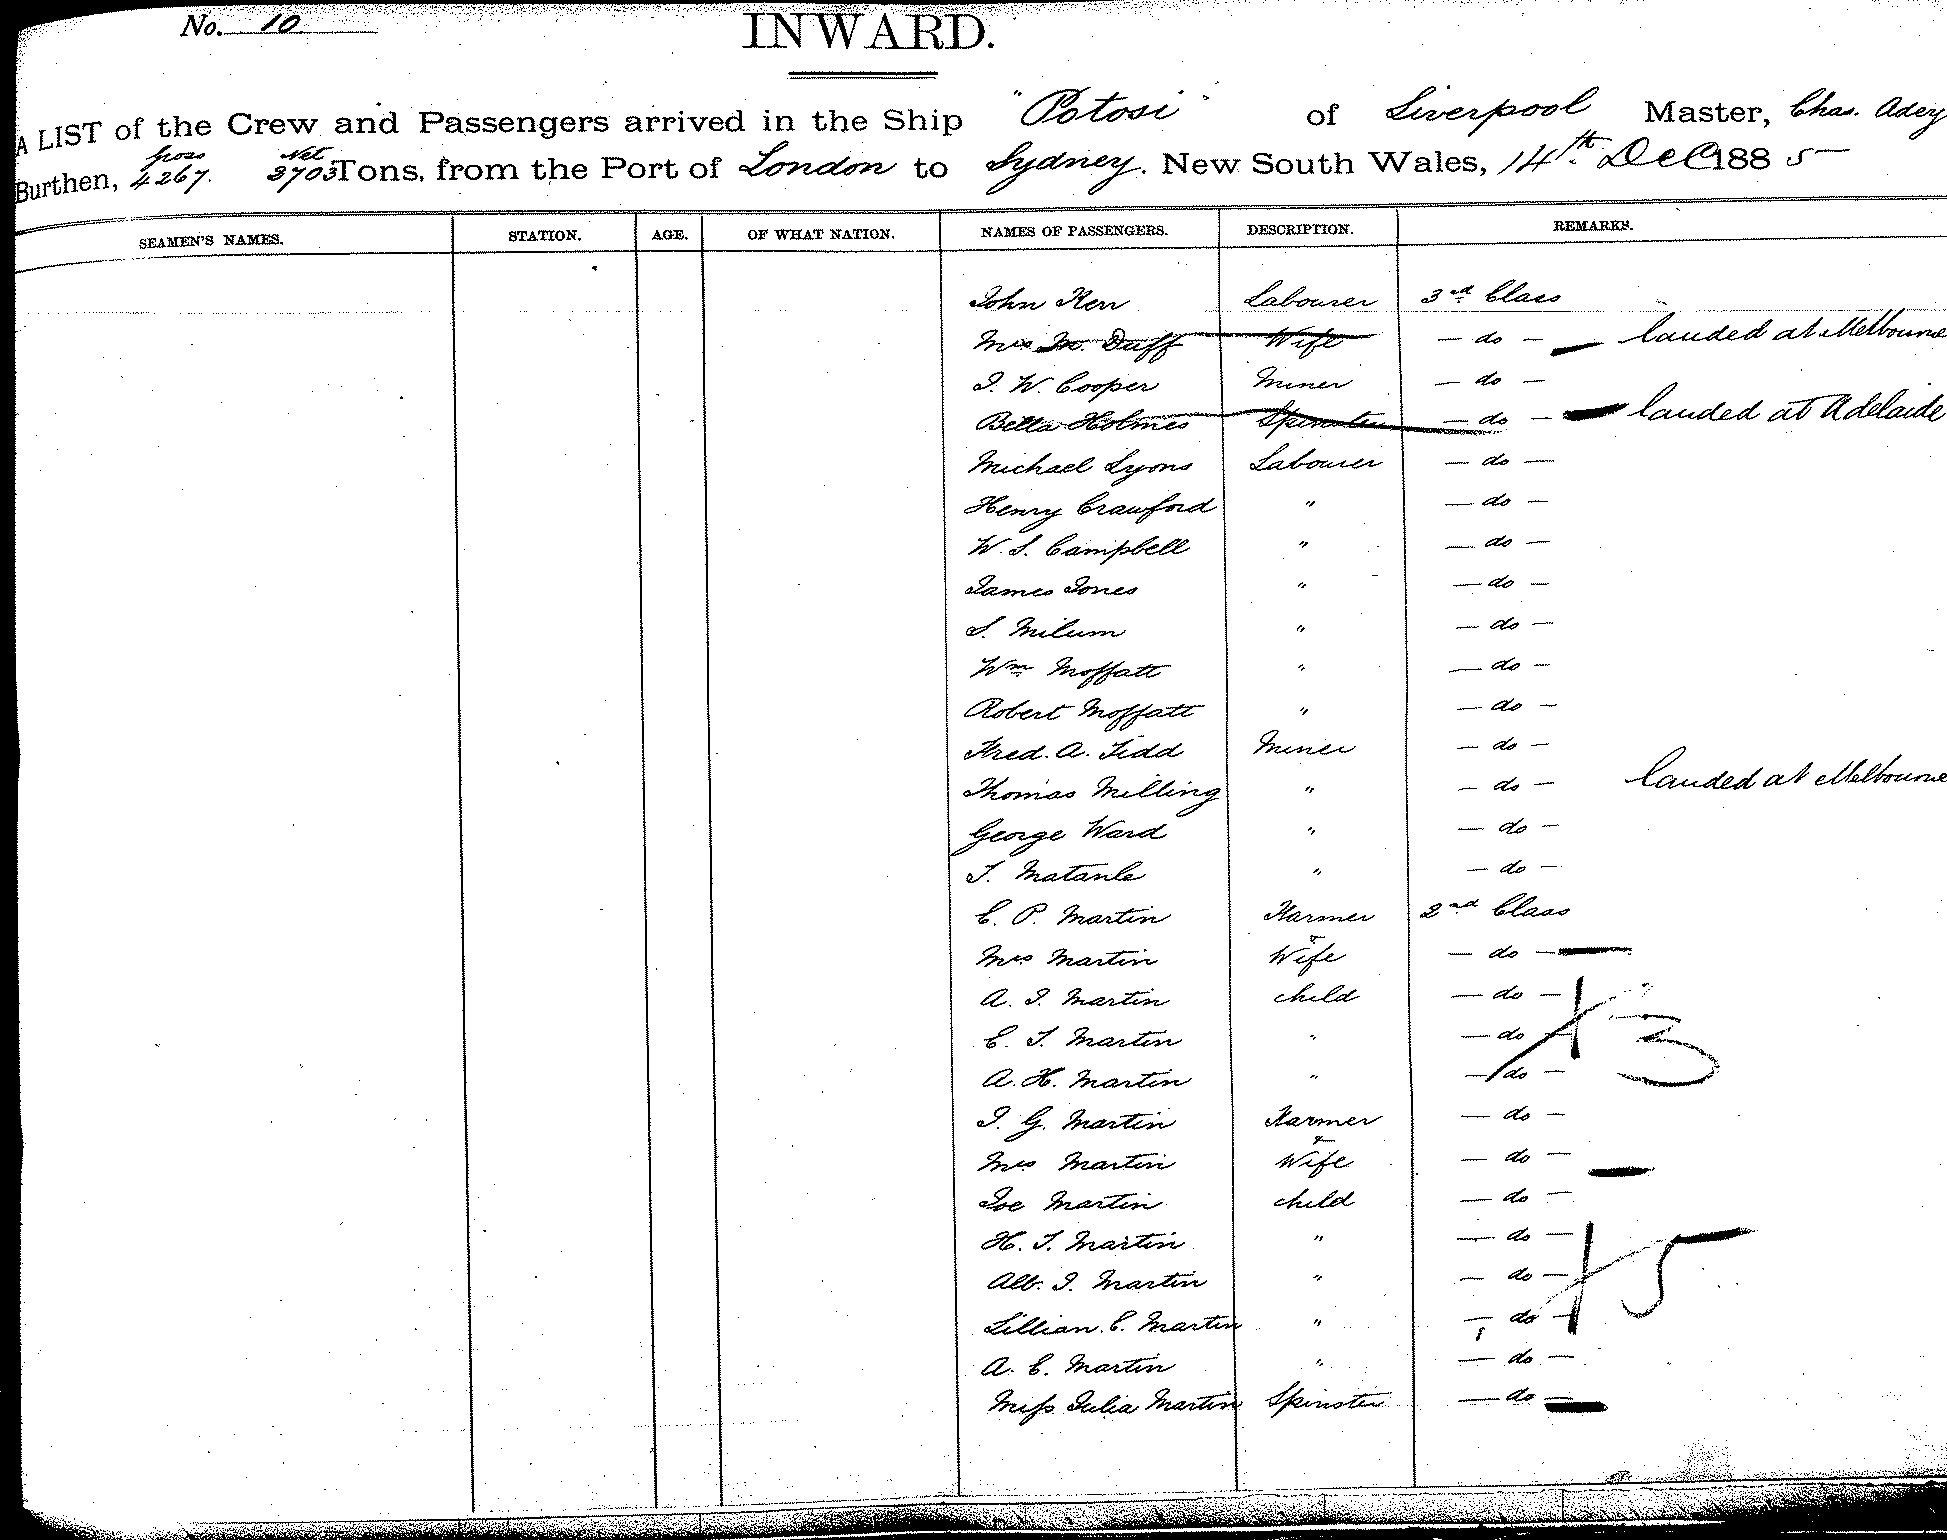 No. 10
INWARD.
A LIST of the Crew and Passengers arrived in the Ship "Potosi" of Liverpool Master, Chas. Adey
Burthen, gross 4267. Net 2703 Tons, from the Port of London to Sydney. New South Wales, 14th. Dec 1885
SEAMEN'S NAMES. STATION. AGE. OF WHAT NATION. NAMES OF PASSENGERS. DESCRIPTION. REMARKS.
John Kerr Labourer 3rd Class
Mrs M. Duff Wife - do - landed at Melbourne
J. W. Cooper Miner - do -
Bella Holmes Spinster - do - landed at Adelaide
Michael Lyons Labourer - do -
Henry Crawford " - do -
W. S. Campbell " - do -
James Jones " - do -
S. Milum " - do -
Wm Moffatt " - do -
Robert Moffatt " - do -
Fred. A. Tidd Miner - do -
Thomas Milling " - do - landed at Melbourne
George Ward " - do -
T. Matanle " - do -
C. P. Martin Farmer 2nd Class
Mrs Martin Wife - do -
A. J. Martin child - do -
C. T. Martin " - do - 3
A. H. Martin " - do -
J. G. Martin Farmer - do -
Mrs Martin Wife - do -
Joe Martin child - do -
H. T. Martin " - do - 5
Alb. J. Martin " - do -
Lillian. C. Martin " - do -
A. C. Martin " - do -
Miss Julia Martin Spinster - do -